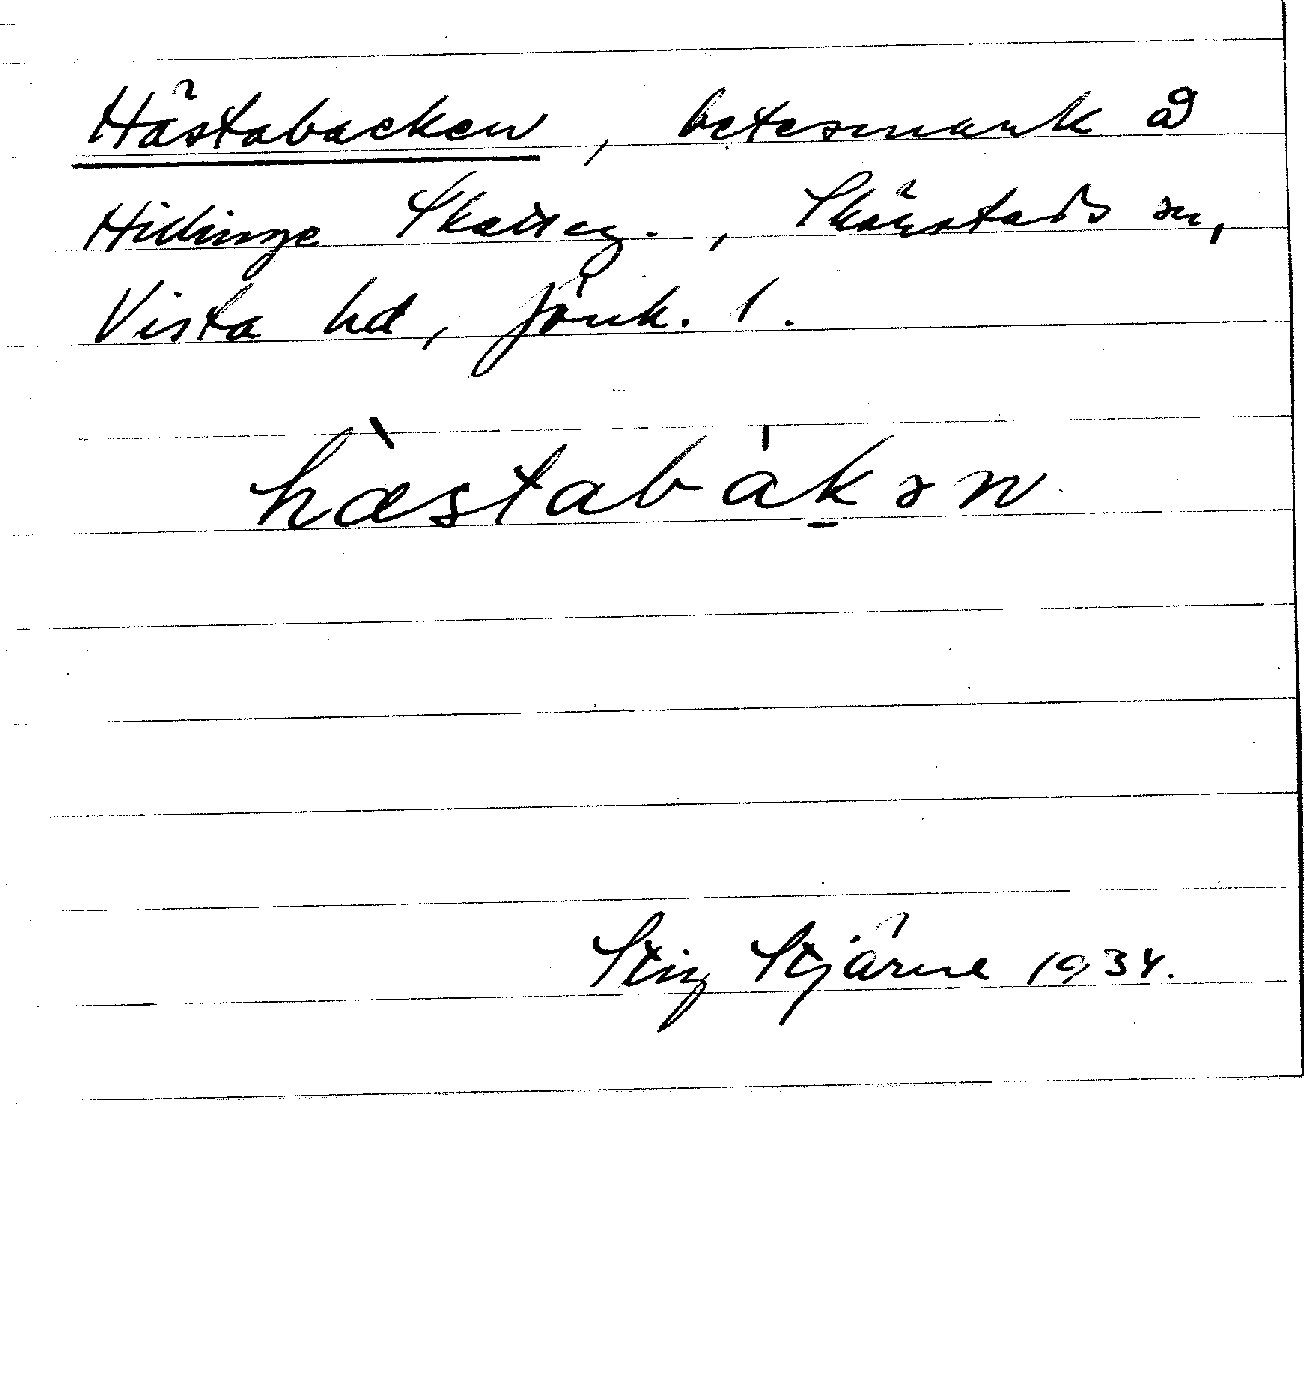 Hästabacken, betesmark å
Hillinge Skatteg., Skärstads sn,
Vista hd, Jönk. l.
hæstabakən
Stig Stjärne 1934.